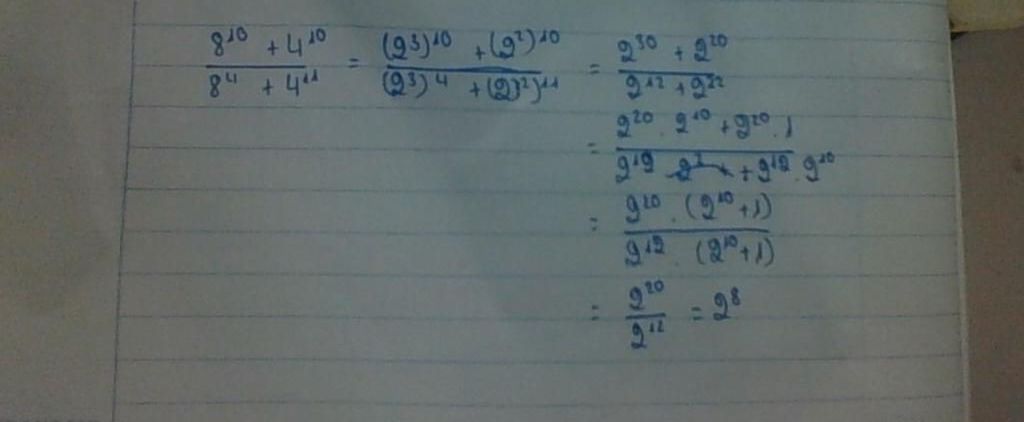 8¹⁰ + 4¹⁰ / 8⁴ + 4¹¹ = (2³)¹⁰ + (2²)¹⁰ / (2³)⁴ + (2²)¹¹ = 2³⁰ + 2²⁰ / 2¹² + 2²²
= 2²⁰ . 2¹⁰ + 2²⁰ . 1 / 2¹² + 2¹² . 2¹⁰
= 2²⁰ . (2¹⁰ + 1) / 2¹² . (2¹⁰ + 1)
= 2²⁰ / 2¹² = 2⁸